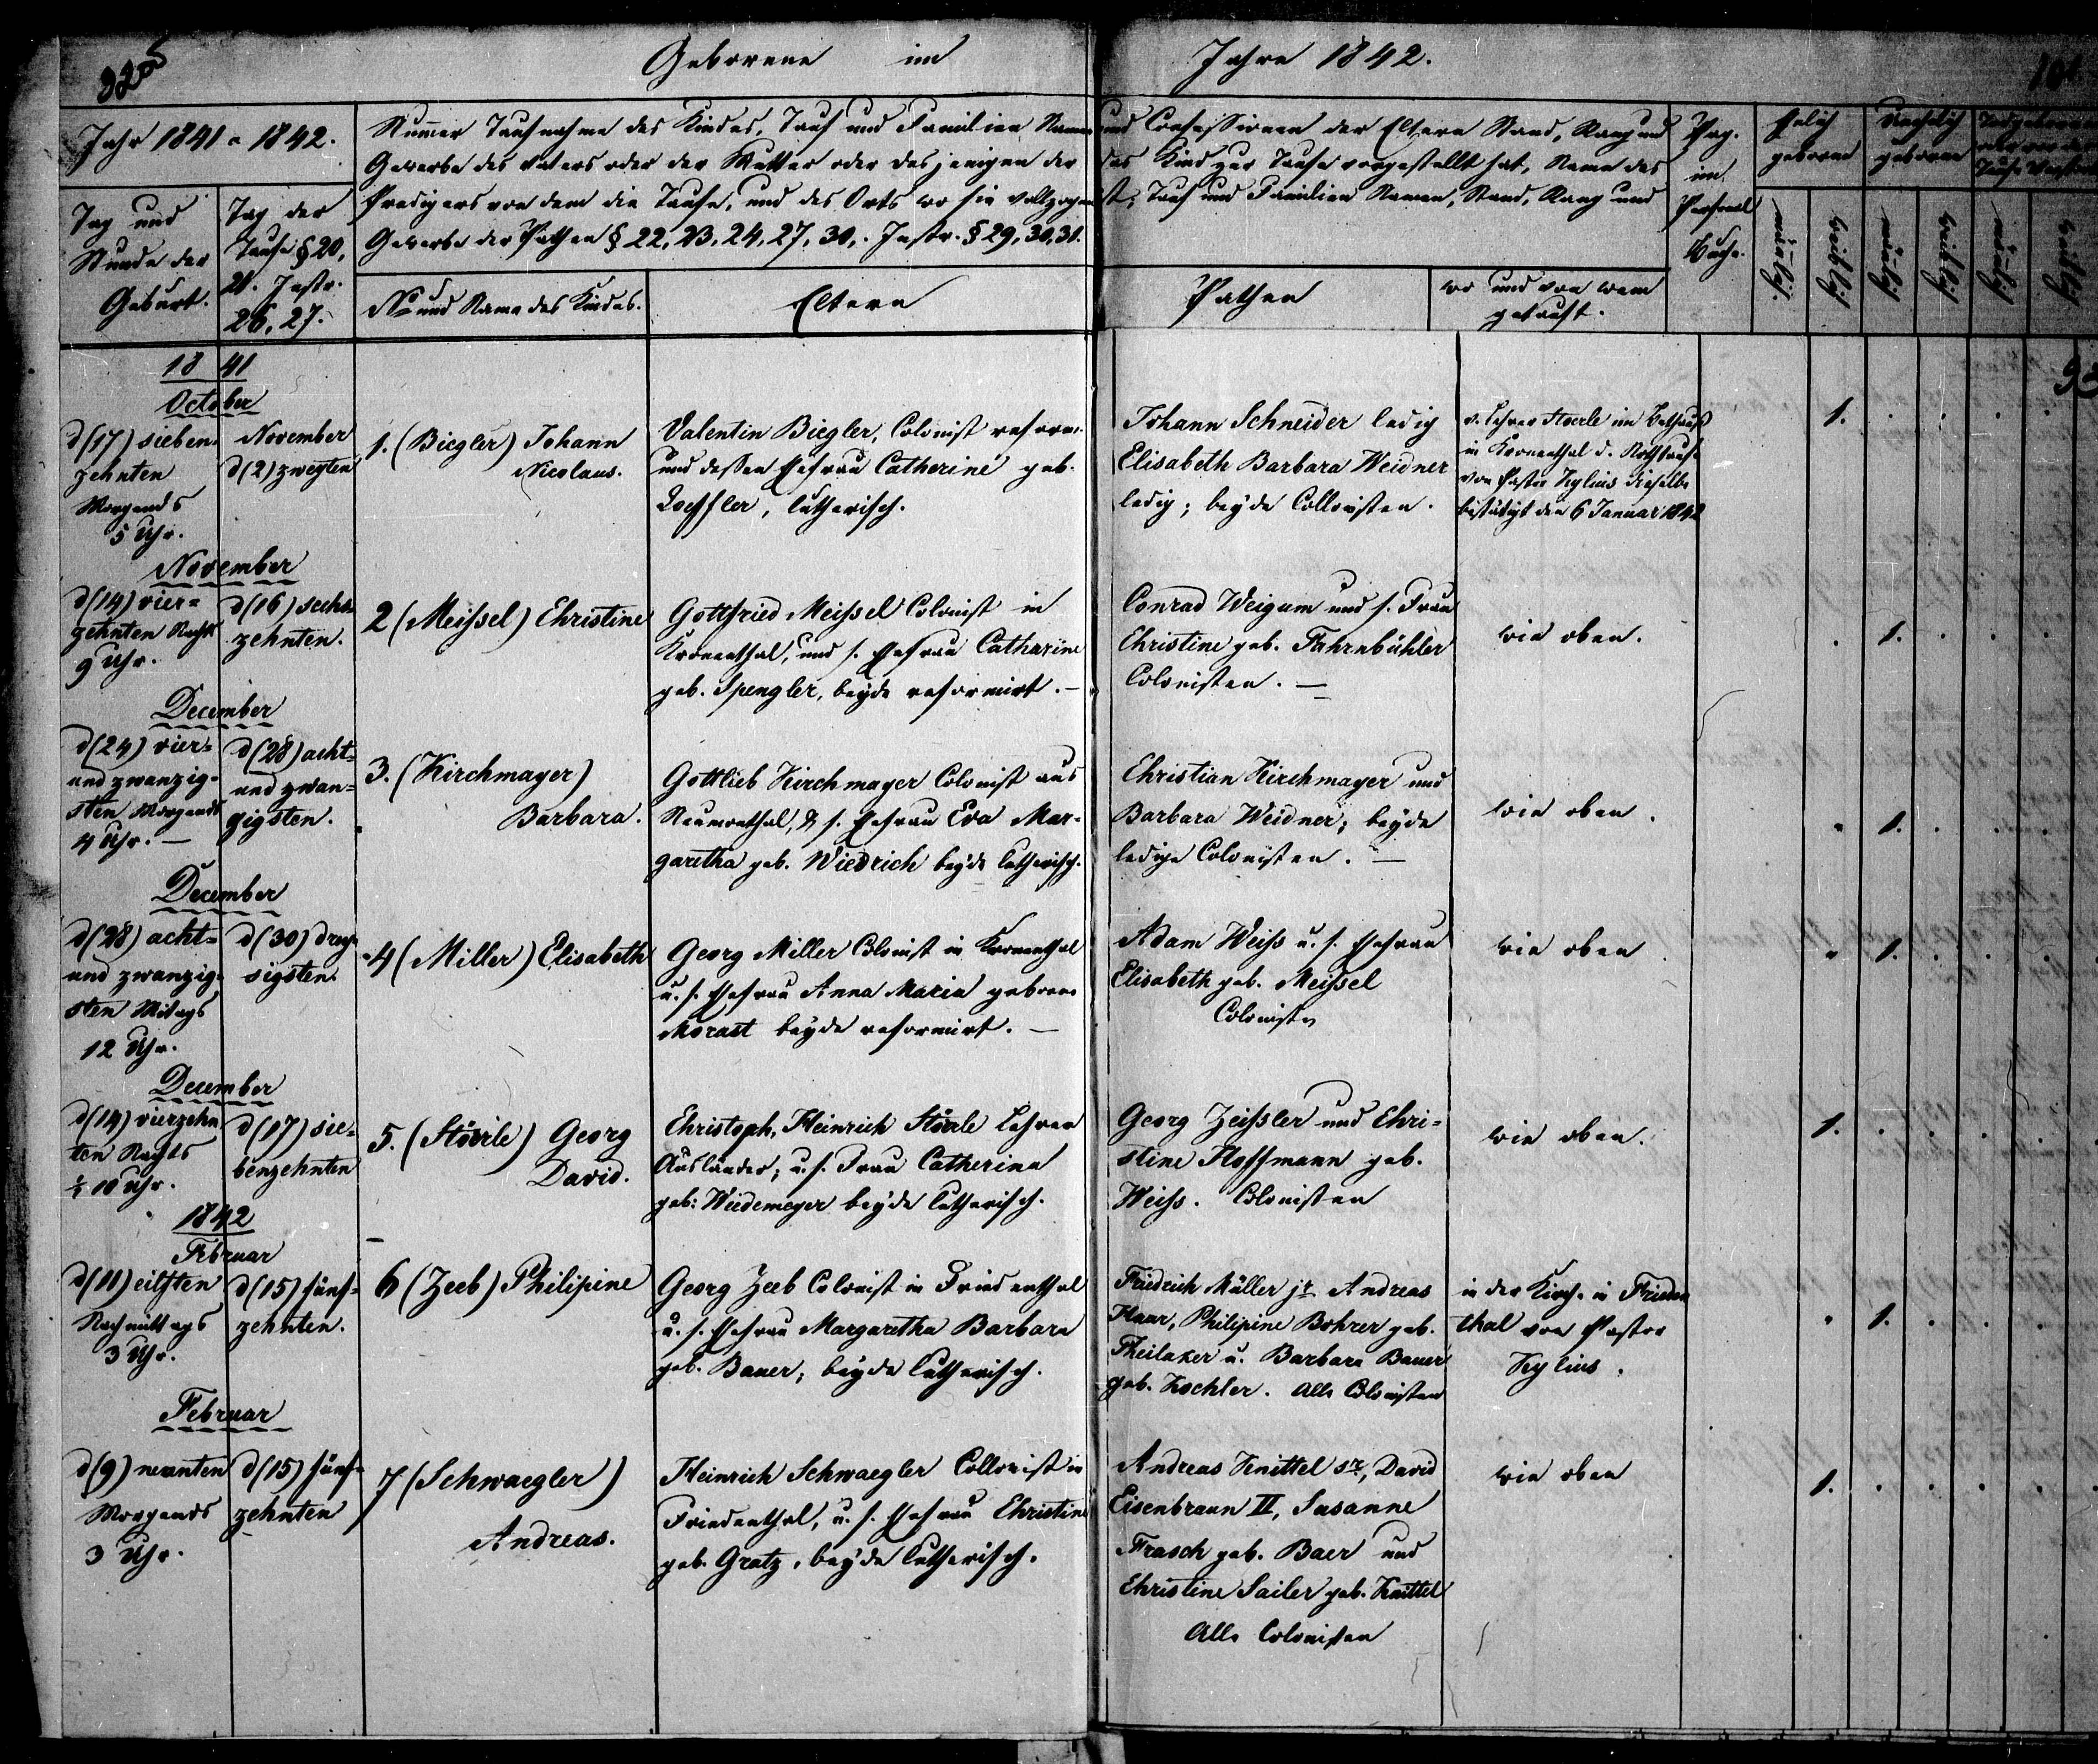 Geborene im Jahre 1842.
Jahr 1841 u 1842.
Tag und
Stunde der
Geburt.
Tag der
Taufe § 20,
21. Instr.
26, 27.
Numer Taufnahme des Kindes, Tauf und Familien Namen und Confessionen der Eltern Stand, Rang und
Gewerbe des Vaters oder der Mutter oder desjenigen der das Kind zur Taufe vorgestellt hat, Name des
Predigers von dem die Taufe, und des Orts wo sie vollzogen ist, Tauf und Familien Namen, Stand, Rang und
Gewerbe der Pathen § 22, 23, 24, 27, 30,. Instr. § 29, 30, 31.
No und Name des Kindes.
Eltern
Pathen
wo und von wem
getauft.
Pag.
im
Personal
Buche.
Ehelich
geboren
Unehelich
geboren
mänlich.
weiblich
mänlich
weiblich
mänlich
weiblich
1841
October
d (17) sieben-
zehnten
Morgends
5 Uhr.
November
d (2) zweyten
1. (Biegler) Johann
Nicolaus.
Valentin Biegler, Colonist reform.
und dessen Ehefrau Catherine geb.
Loeffler, lutherisch.
Johann Schneider ledig
Elisabeth Barbara Weidner
ledig; beyde Collonisten.
v. Lehrer Stoerle im Bethaus
in Kronenthal d. Nothtaufe
von Pastor Kylius dieselbe
bestätigt den 6 Januar 1842
1.
November
d (14) vier=
zehnten Nachts
9 Uhr.
d (16) sechs=
zehnten.
2 (Meissel) Christine
Gottfried Meissel Colonist in
Kronenthal, und s. Ehefrau Catharine
geb. Spengler, beyde reformirt. —
Conrad Weigum und s. Frau
Christine geb. Fahrnbühler
Colonisten. —
wie oben.
1.
December
d (24) vier=
und zwanzig-
sten Morgends
4 Uhr. —
d (28) acht=
und zwan=
zigsten.
3. (Kirchmayer)
Barbara.
Gottlieb Kirchmayer Colonist aus
Neumonthal, & s. Ehefrau Eva Mar-
garetha geb. Wiedrich beyde lutherisch.
Christian Kirchmayer und
Barbara Weidner; beyde
ledige Colonisten. —
wie oben.
1.
December
d (28) acht=
und zwanzig-
sten Mitags
12 Uhr.
d (30) drey-
sigsten.
4 (Miller) Elisabeth
Georg Miller Colonist in Kronenthal
u. s. Ehefrau Anna Maria geborne
Morast beyde reformirt. —
Adam Weiss u. s. Ehefrau
Elisabeth geb. Meissel
Colonisten
wie oben
1.
December
d (14) vierzehn
ten Nachts
½ 10 Uhr.
d (17) sie-
benzehnten
5. (Stöerle) Georg
David.
Christoph, Heinrich Stöerle Lehrer
Ausländer; u. s. Frau Catherina
geb: Weidemeyer beyde lutherisch.
Georg Zeissler und Chri=
stine Hoffmann geb.
Weiss. Colonisten
wie oben.
1.
1842
Februar
d (11) eilften
Nachmittags
3 Uhr.
d (15) fünf=
zehnten.
6 (Zeeb) Philipine
Georg Zeeb Colonist in Friedenthal
u. s. Ehefrau Margaretha Barbara
geb. Bauer; beyde lutherisch.
Friedrich Müller jr. Andreas
Haar, Philipine Bohrer geb.
Theilaker u. Barbara Bauer
geb. Kochler. Alle Colonisten
in der Kirche in Frieden
thal von Pastor
Kylius.
1.
Februar
d (9) neunten
Morgends
3 Uhr.
d (15) fünf=
zehnten
7 (Schwaegler)
Andreas.
Heinrich Schwaegler Collonist in
Friedenthal, u. s. Ehefrau Christine
geb. Gratz, beyde lutherisch.
Andreas Knittel sr., David
Eisenbraun II, Susanne
Frasch geb. Baer und
Christine Sailer geb. Knittel
Alle Colonisten
wie oben
1.